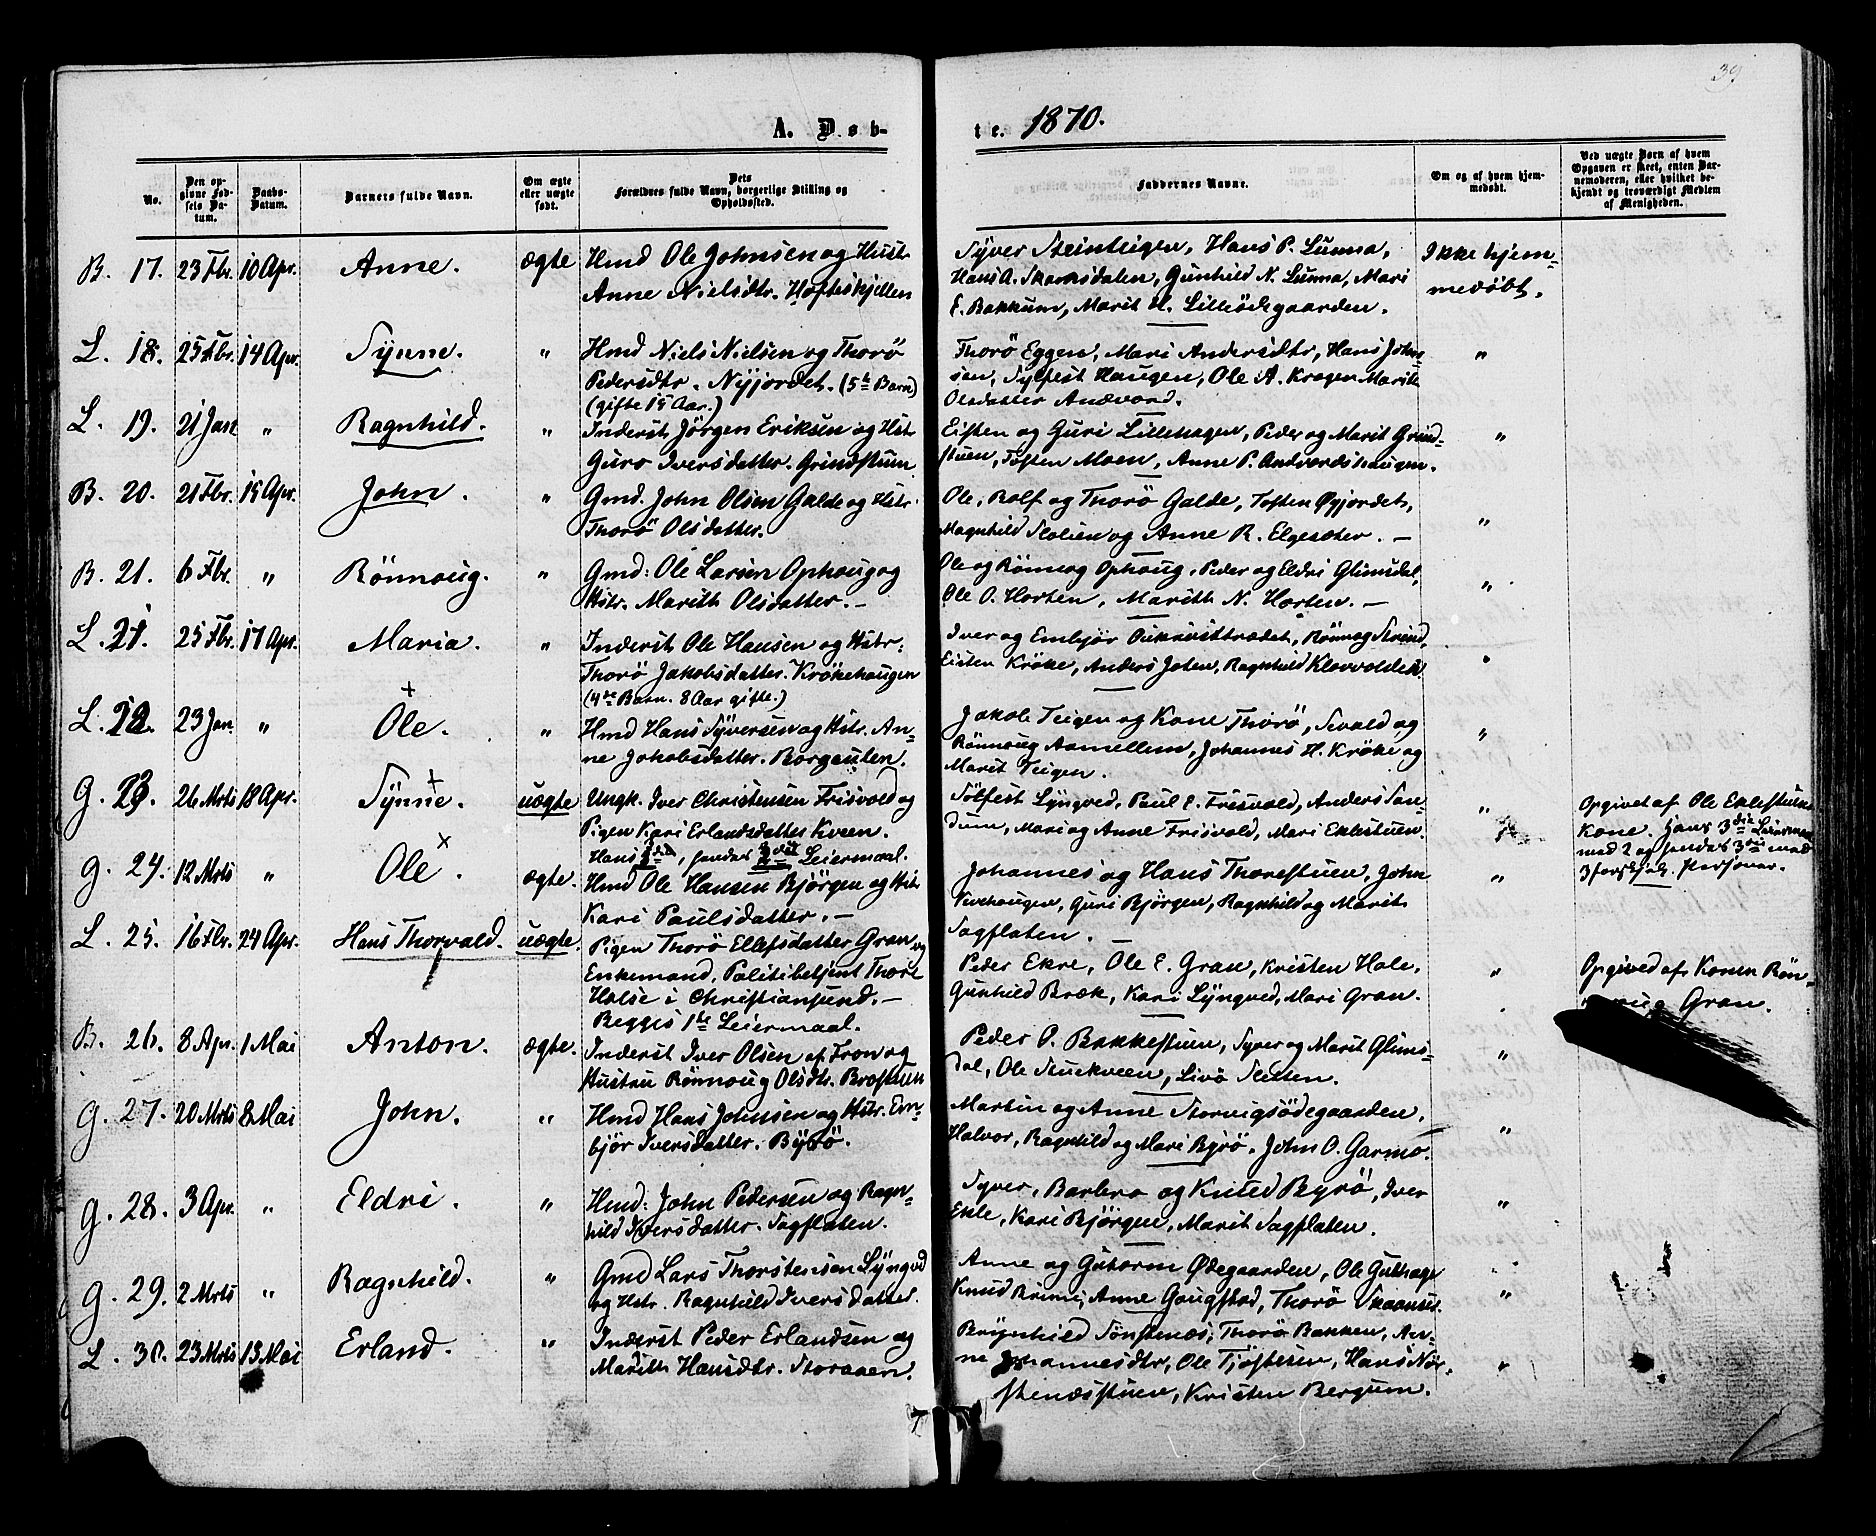 39
A. Døb-
te. 1870.
No.
Den op-
givne Fød-
sels Da-
tum.
Daabs-
Datum.
Barnets fulde Navn.
Om ægte
eller uægte
født.
Dets
Forældres fulde Navn, borgerlige Stilling og
Opholdssted.
Faddernes Navne.
Om og af hvem hjem-
medøbt.
Ved uægte Børn af hvem
Opgaven er skeet, enten Bar-
nemoderen, eller hvilket be-
kjendt og troværdigt Medlem
af Menigheden.
B. 17. 23 Fbr. 10 Apr. Anne. ægte Hmd Ole Johnsen og Hustr.
Anne Nielsdtr. Hofteskjellen
Syver Steinteigen, Hans P. Lunna,
Hans A. Skamsdalen, Gunhild N. Lunna, Mari
E. Bakkum, Marit H. Lilleödegaarden.
Ikke hjem-
medøbt.
L. 18. 25 Fbr. 14 Apr. Synne. " Hmd Niels Nielsen og Thorö
Pedersdtr. Nyjordet. (5te Barn)
(gifte 15 Aar.)
Thorö Eggen, Mari Andersdtr, Hans John-
sen, Sylfest Haugen, Ole A. Kragen Marit
Olsdatter Andvord. "
L. 19. 21 Jan " Ragnhild. " Inderst Jörgen Eriksen og Hstr.
Guro Iversdatter. Grindstuen
Eisten og Guri Lillehagen, Peder og Marit Grind-
stuen, Tosten Moen, Anne P. Andvordshaugen. "
B. 20. 21 Fbr. 15 Apr. John. " Gmd. John Olsen Galde og Hstr.
Thorö Olsdatter.
Ole, Rolf og Thorö Galde, Tosten Øyjordet,
Magnhild Stolien og Anne R. Elgesæter. — "
B. 21. 6 Fbr. " Rönnoug. " Gmd: Ole Larsen Ophoug og
Hstr. Marith Olsdatter. —
Ole og Rönnog Ophoug, Peder og Eldri Glimsdal,
Ole O. Horten, Marith N. Horten. — "
L. 21. 25 Fbr. 17 Apr. Maria. " Inderst Ole Hansen og Hstr:
Thorö Jakobsdatter. Krökehaugen
(4de Barn. 8 Aar gifte.)
Iver og Embjör, Rönnog Strind,
Eisten Kröke, Anders Joten, Ragnhild Klovvolden.
L. 22. 23 Jan. " Ole. " Hmd Hans Syversen og Hstr. An-
ne Jakobsdatter. Borgeulen.
Jakob Teigen og Kone Thorö, Sivald og
Rönnoug Aamellem, Johannes H. Kröke og
Marit Teigen. "
G. 23. 26 Mrts 18 Apr. Synne. uægte Ungk. Iver Christensen Frisvold og
Pigen Kari Erlandsdatter Kveen.
Hans 3die, hendes 2det Leiermaal.
Sölfest Lyngved, Paul E. Frisvold, Anders San-
dum, Mari og Anne Frisvold, Mari Eklestuen. "
Opgivet af Ole Eklestuens
Kone. Hans 3die Leiermaal
med 2 og hendes 3die med
3 forskjell. Personer.
G. 24. 12 Mrts " Ole. ægte. Hmd Ole Hansen Bjørgen og Hstr
Kari Paulsdatter. —
Johannes og Hans Thorestuen, John
Sivehaugen, Guri Bjørgen, Ragnhild og Marit
Sagflaten. "
L. 25. 16 Fbr. 24 Apr. Hans Thorvald. uægte. Pigen Thorö Ellefsdatter Gran og
Enkemand, Politibetjent Thore
Halse i Christiansund. —
Begges 1ste Leiermaal.
Peder Ekre, Ole E. Gran, Kristen Hole,
Gunhild Bræk, Kari Lyngved, Mari Gran. "
Opgived af Konen Rön-
noug Gran.
B. 26. 8 Apr. 1 Mai Anton. ægte. Inderst Iver Olsen af Fron og
Hustru Rönnoug Olsdtr. Brostuen
Peder O. Bakkestuen, Syver og Marit Glims-
dal, Ole Stuckveen, Livö Sletten. "
G. 27. 20 Mrts 8 Mai John. " Hmd Hans Johnsen og Hstr. Em-
björ Iversdatter. Byrö.
Martin og Anne Storvigsödegaarden,
Halvor, Ragnhild og Mari Byrö, John O. Garmo. "
G. 28. 3 Apr. " Eldri. " Hmd: John Pedersen og Ragn-
hild Iversdatter. Sagflaten.
Syver, Barbro og Knud Byrö, Iver
Ekle, Kari Bjørgen, Marit Sagflaten. "
G. 29. 2 Mrts " Ragnhild. " Gmd Lars Thorstensen Lyngved
og Hstr. Ragnhild Iversdatter.
Anne og Guttorm Ødegaarden, Ole Gulhage
Knud Brimi, Anne Gougstad, Thorö Skaanset. "
L. 30. 23 Mrts 13 Mai Erland. " Inderst Peder Erlandsen og
Marith Hansdtr. Storaaen.
Brynhild Sönstenæs, Thorö Bakken, An-
ne Johannesdtr, Ole Tjöstesen, Hans Nör-
stenæsstuen, Kristen Bergum. "